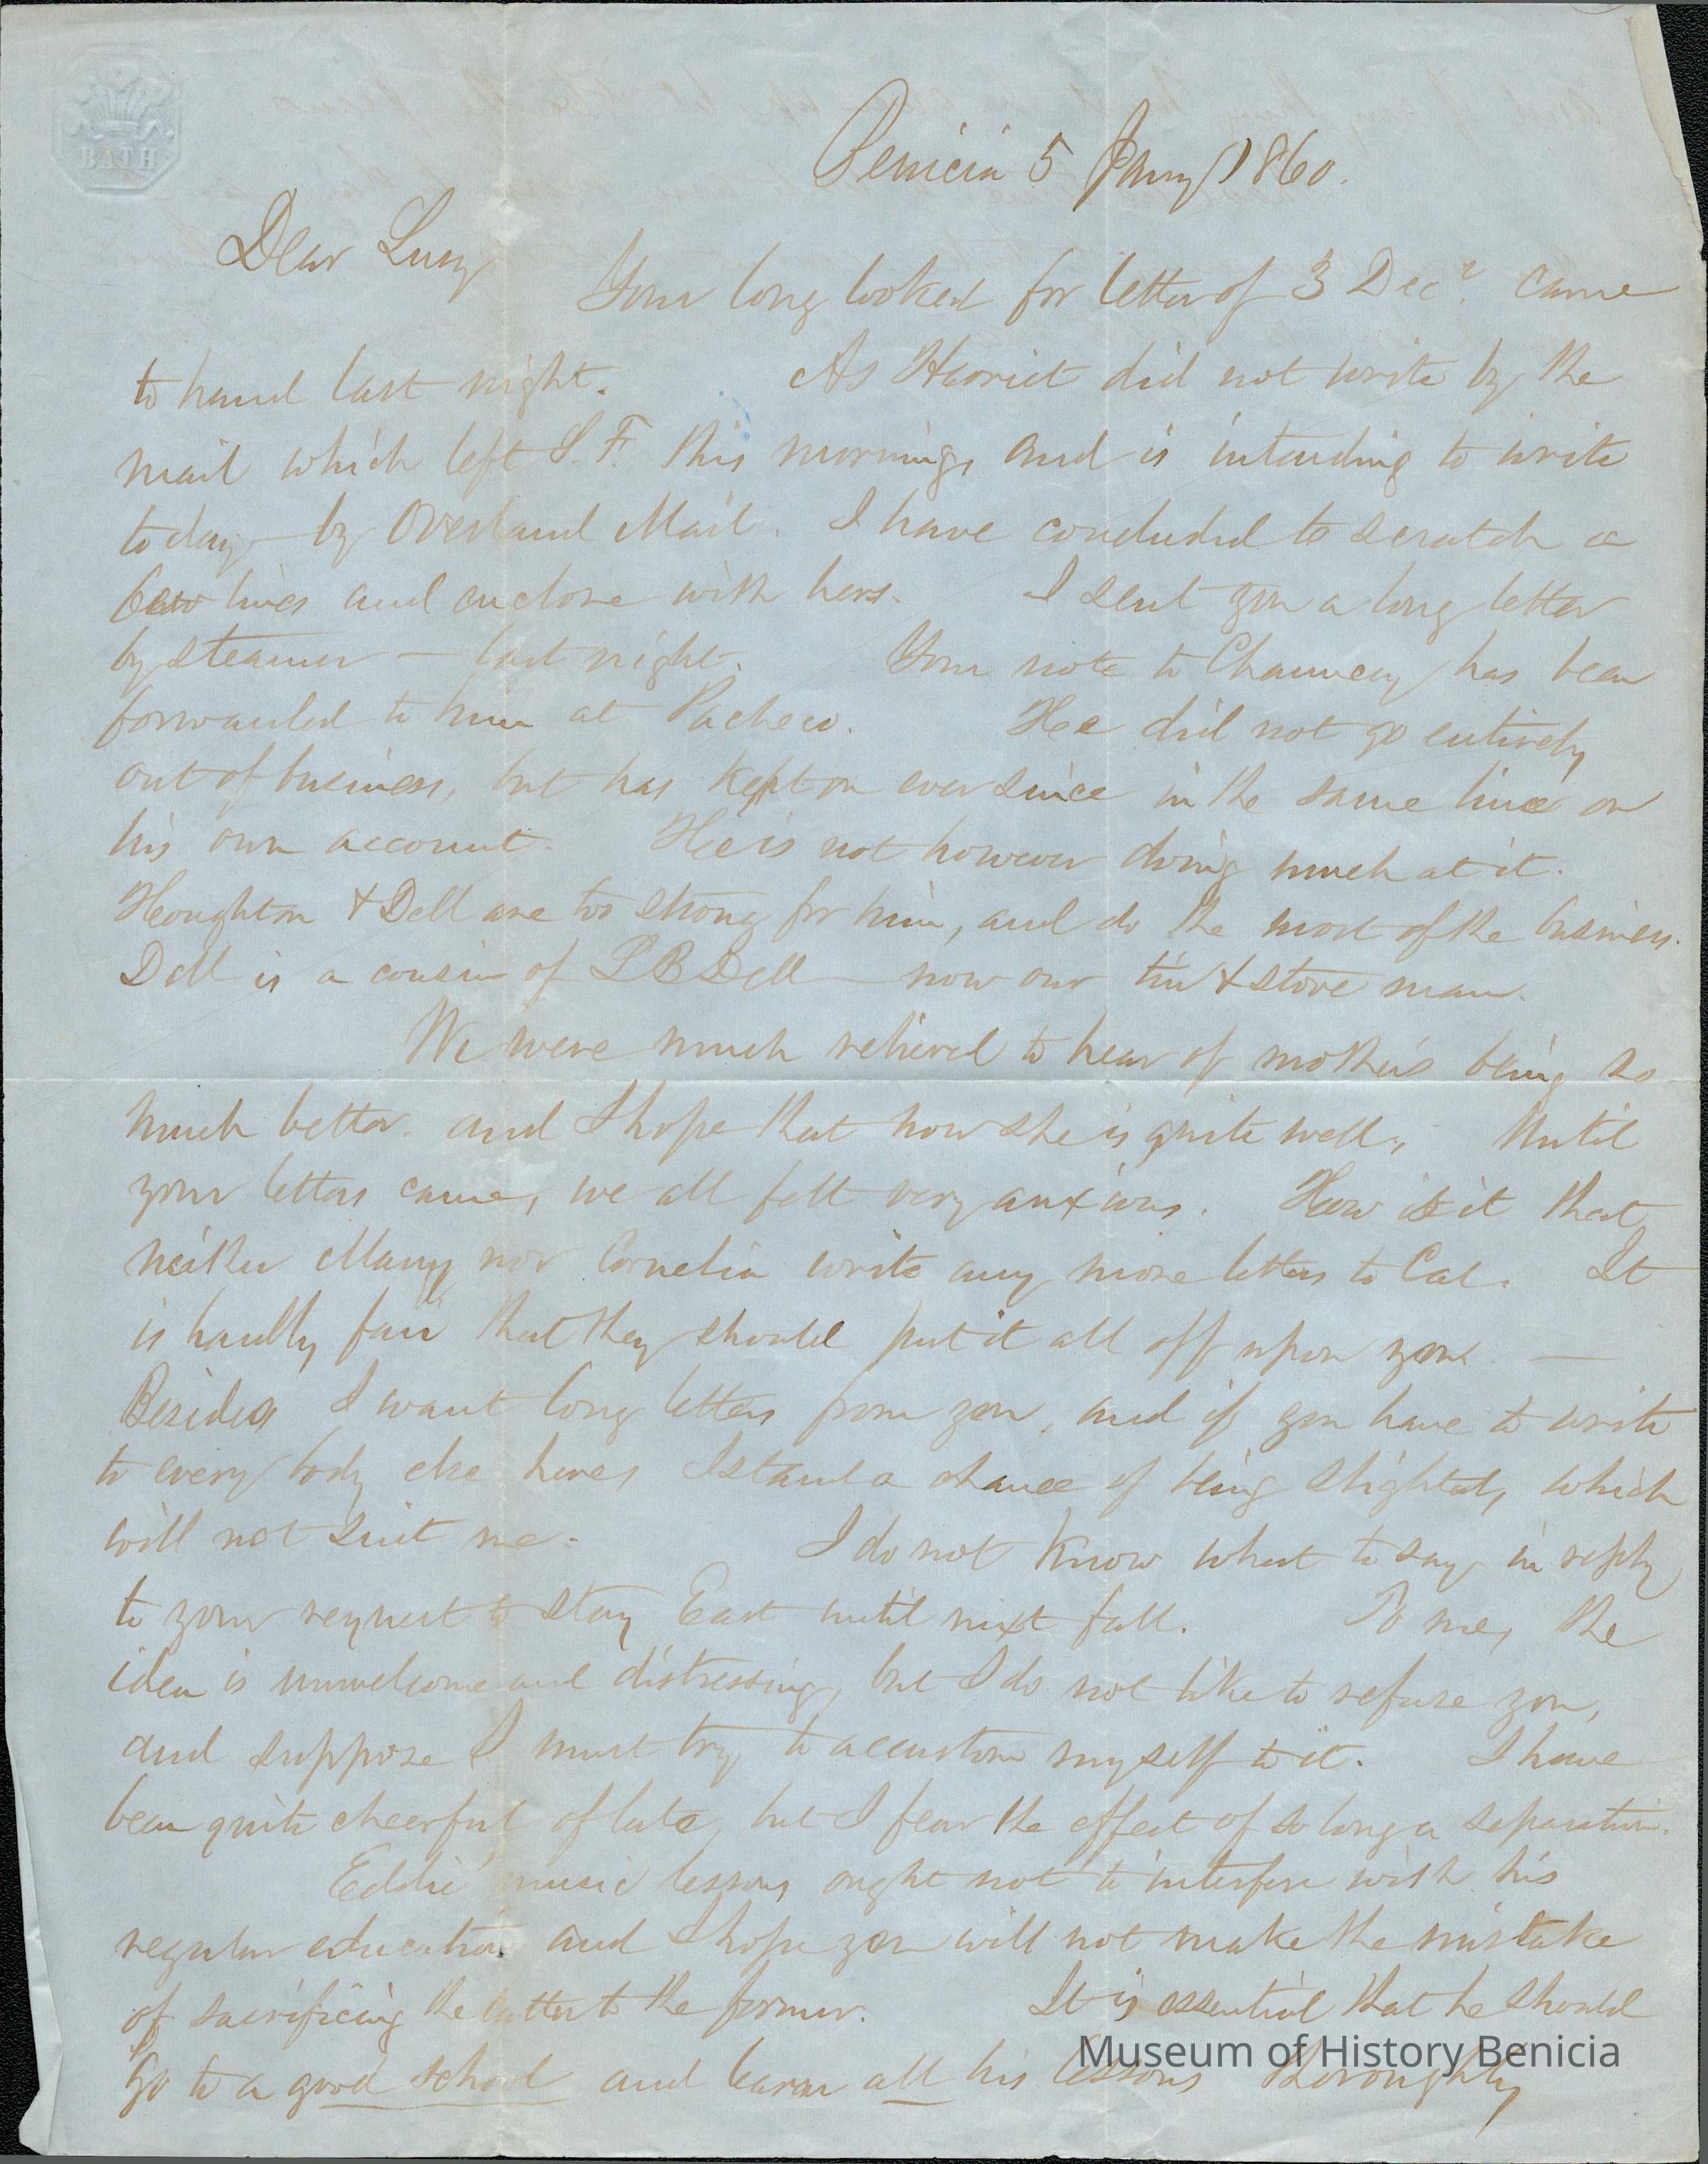 BATH
Benicia 5 Jany 1860.
Dear Lucy
Your long looked for letter of 3 Decr. came
to hand last night. As Harriet did not write by the
mail which left S.F. this morning, and is intending to write
today by Overland Mail. I have concluded to scratch a
few lines and enclose with hers. I sent you a long letter
by steamer — last night. Your note to Chauncey has been
forwarded to him at Pacheco. He did not go entirely
out of business, but has kept on ever since in the same line on
his own account. He is not however doing much at it.
Houghton & Dell are too strong for him, and do the most of the business.
Dell is a cousin of L B Dell — now our tin & stove man.
We were much relieved to hear of mother's being so
much better. and I hope that now she is quite well, Until
your letters came, we all felt very anxious. How is it that
neither Mary nor Cornelia write any more letters to Cal. It
is hardly fair that they should put it all off upon you —
Besides I want long letters from you, and if you have to write
to every body else here, I stand a chance of being slighted, which
will not suit me. I do not know what to say in reply
to your request to stay East until next fall. To me, the
idea is unwelcome and distressing, but I do not like to refuse you,
and suppose I must try to accustom myself to it. I have
been quite cheerful of late, but I fear the effect of so long a separation.
Eddie' music lessons ought not to interfere with his
regular education and I hope you will not make the mistake
of sacrificing the latter to the former. It is essential that he should
go to a good school and learn all his lessons thoroughly
Museum of History Benicia